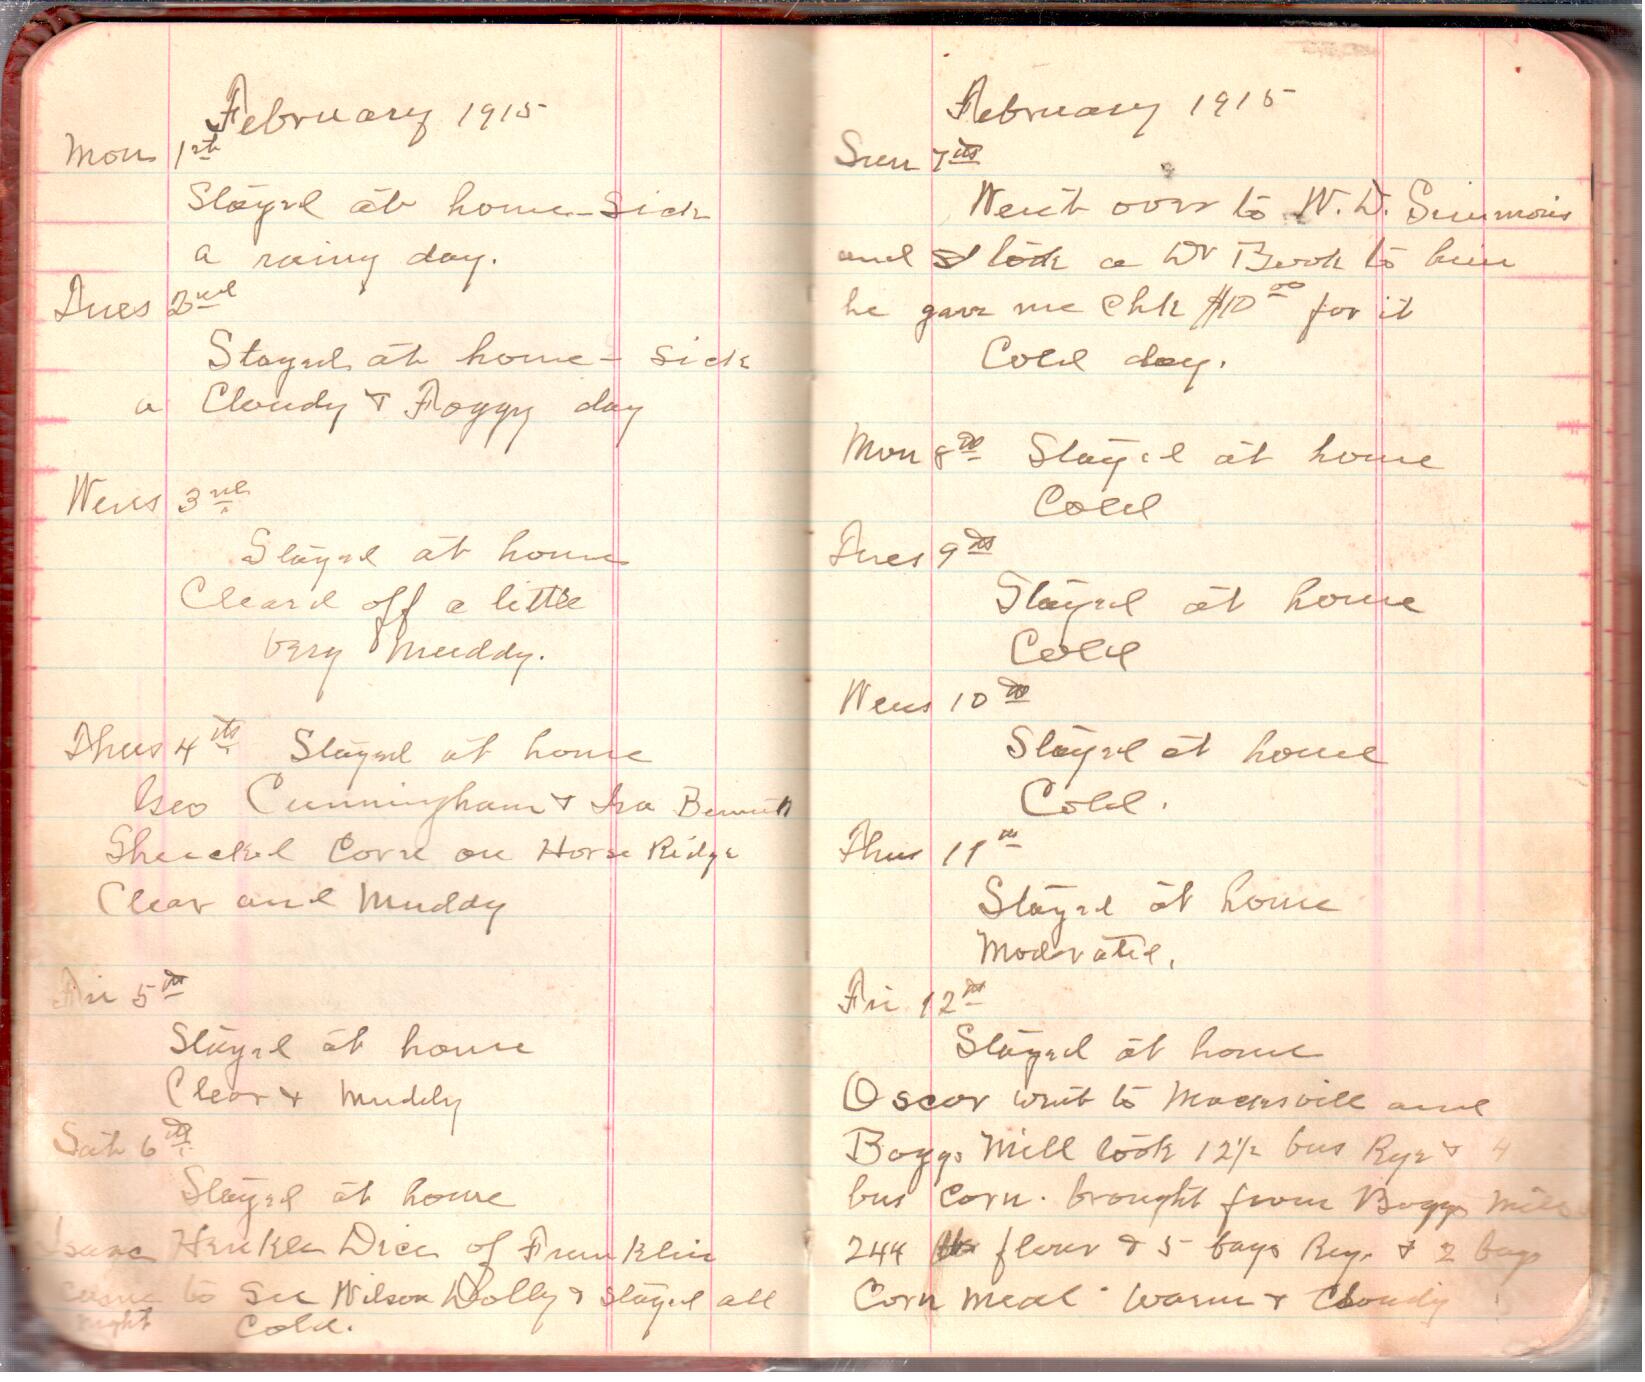 February 1915
Mon 1st
Stayed at home - Sick
a rainy day.
Tues 2nd
Stayed at home - Sick
a Cloudy & Foggy day
Wens 3rd
Stayed at home
Cleard off a little
very Muddy.
Thus 4th Stayed at home
Geo Cunningham & Ira Bennett
Shuckel Corn on Horse Ridge
Clear and Muddy
Fri 5th
Stayed at home
Clear & Muddy
Sat 6th
Stayed at home
Isaac Henkle Dice of Franklin
came to See Wilson Dolly & stayed all
night Cold.
February 1915
Sun 7th
Went over to W. D. Simmons
and I took a Dr Book to him
he gave me Chk $10 00 for it
Cold day.
Mon 8th Stayed at home
Cold
Tues 9th
Stayed at home
Cold
Wens 10th
Stayed at home
Cold.
Thus 11th
Stayed at home
Moderated.
Fri 12th
Stayed at home
Oscar went to Macksvill and
Boggs Mill took 12 1/2 bus Rye & 4
bus Corn. brought from Boggs Mill
244 lb flour & 5 bags Rye & 2 bags
Corn Meal. Warm & Cloudy